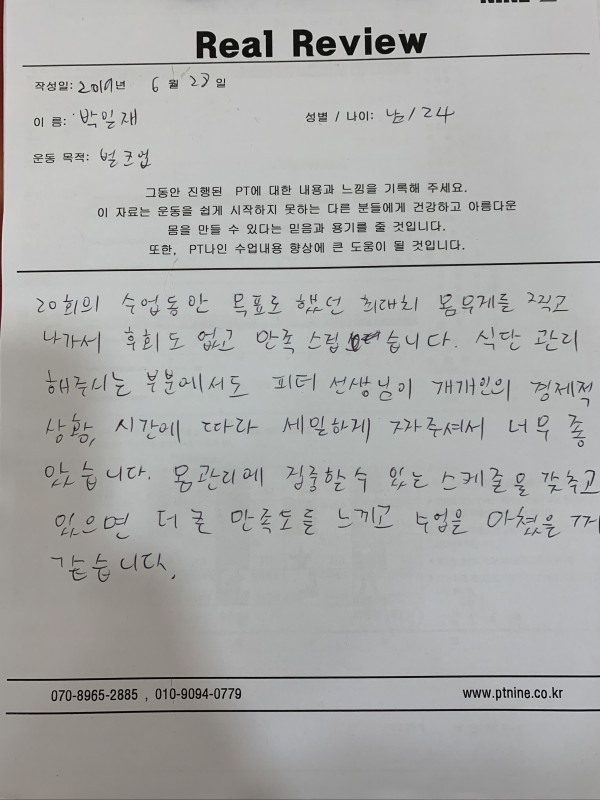 Real Review
작성일: 2019년 6월 23일
이 름: 박일재 성별 / 나이: 남/24
운동 목적: 벌크업
그동안 진행된 PT에 대한 내용과 느낌을 기록해 주세요.
이 자료는 운동을 쉽게 시작하지 못하는 다른 분들에게 건강하고 아름다운
몸을 만들 수 있다는 믿음과 용기를 줄 것입니다.
또한, PT나인 수업내용 향상에 큰 도움이 될 것입니다.
20회의 수업동안 목표로 했던 최대치 몸무게를 찍고
나가서 후회도 없고 만족스럽습니다. 식단 관리
해주시는 부분에서도 피티 선생님이 개개인의 경제적
상황, 시간에 따라 세밀하게 짜주셔서 너무 좋
았습니다. 몸관리에 집중할수 있는 스케줄을 갖추고
있으면 더 큰 만족도를 느끼고 수업을 마쳤을 꺼
같습니다.
070-8965-2885 , 010-9094-0779 www.ptnine.co.kr